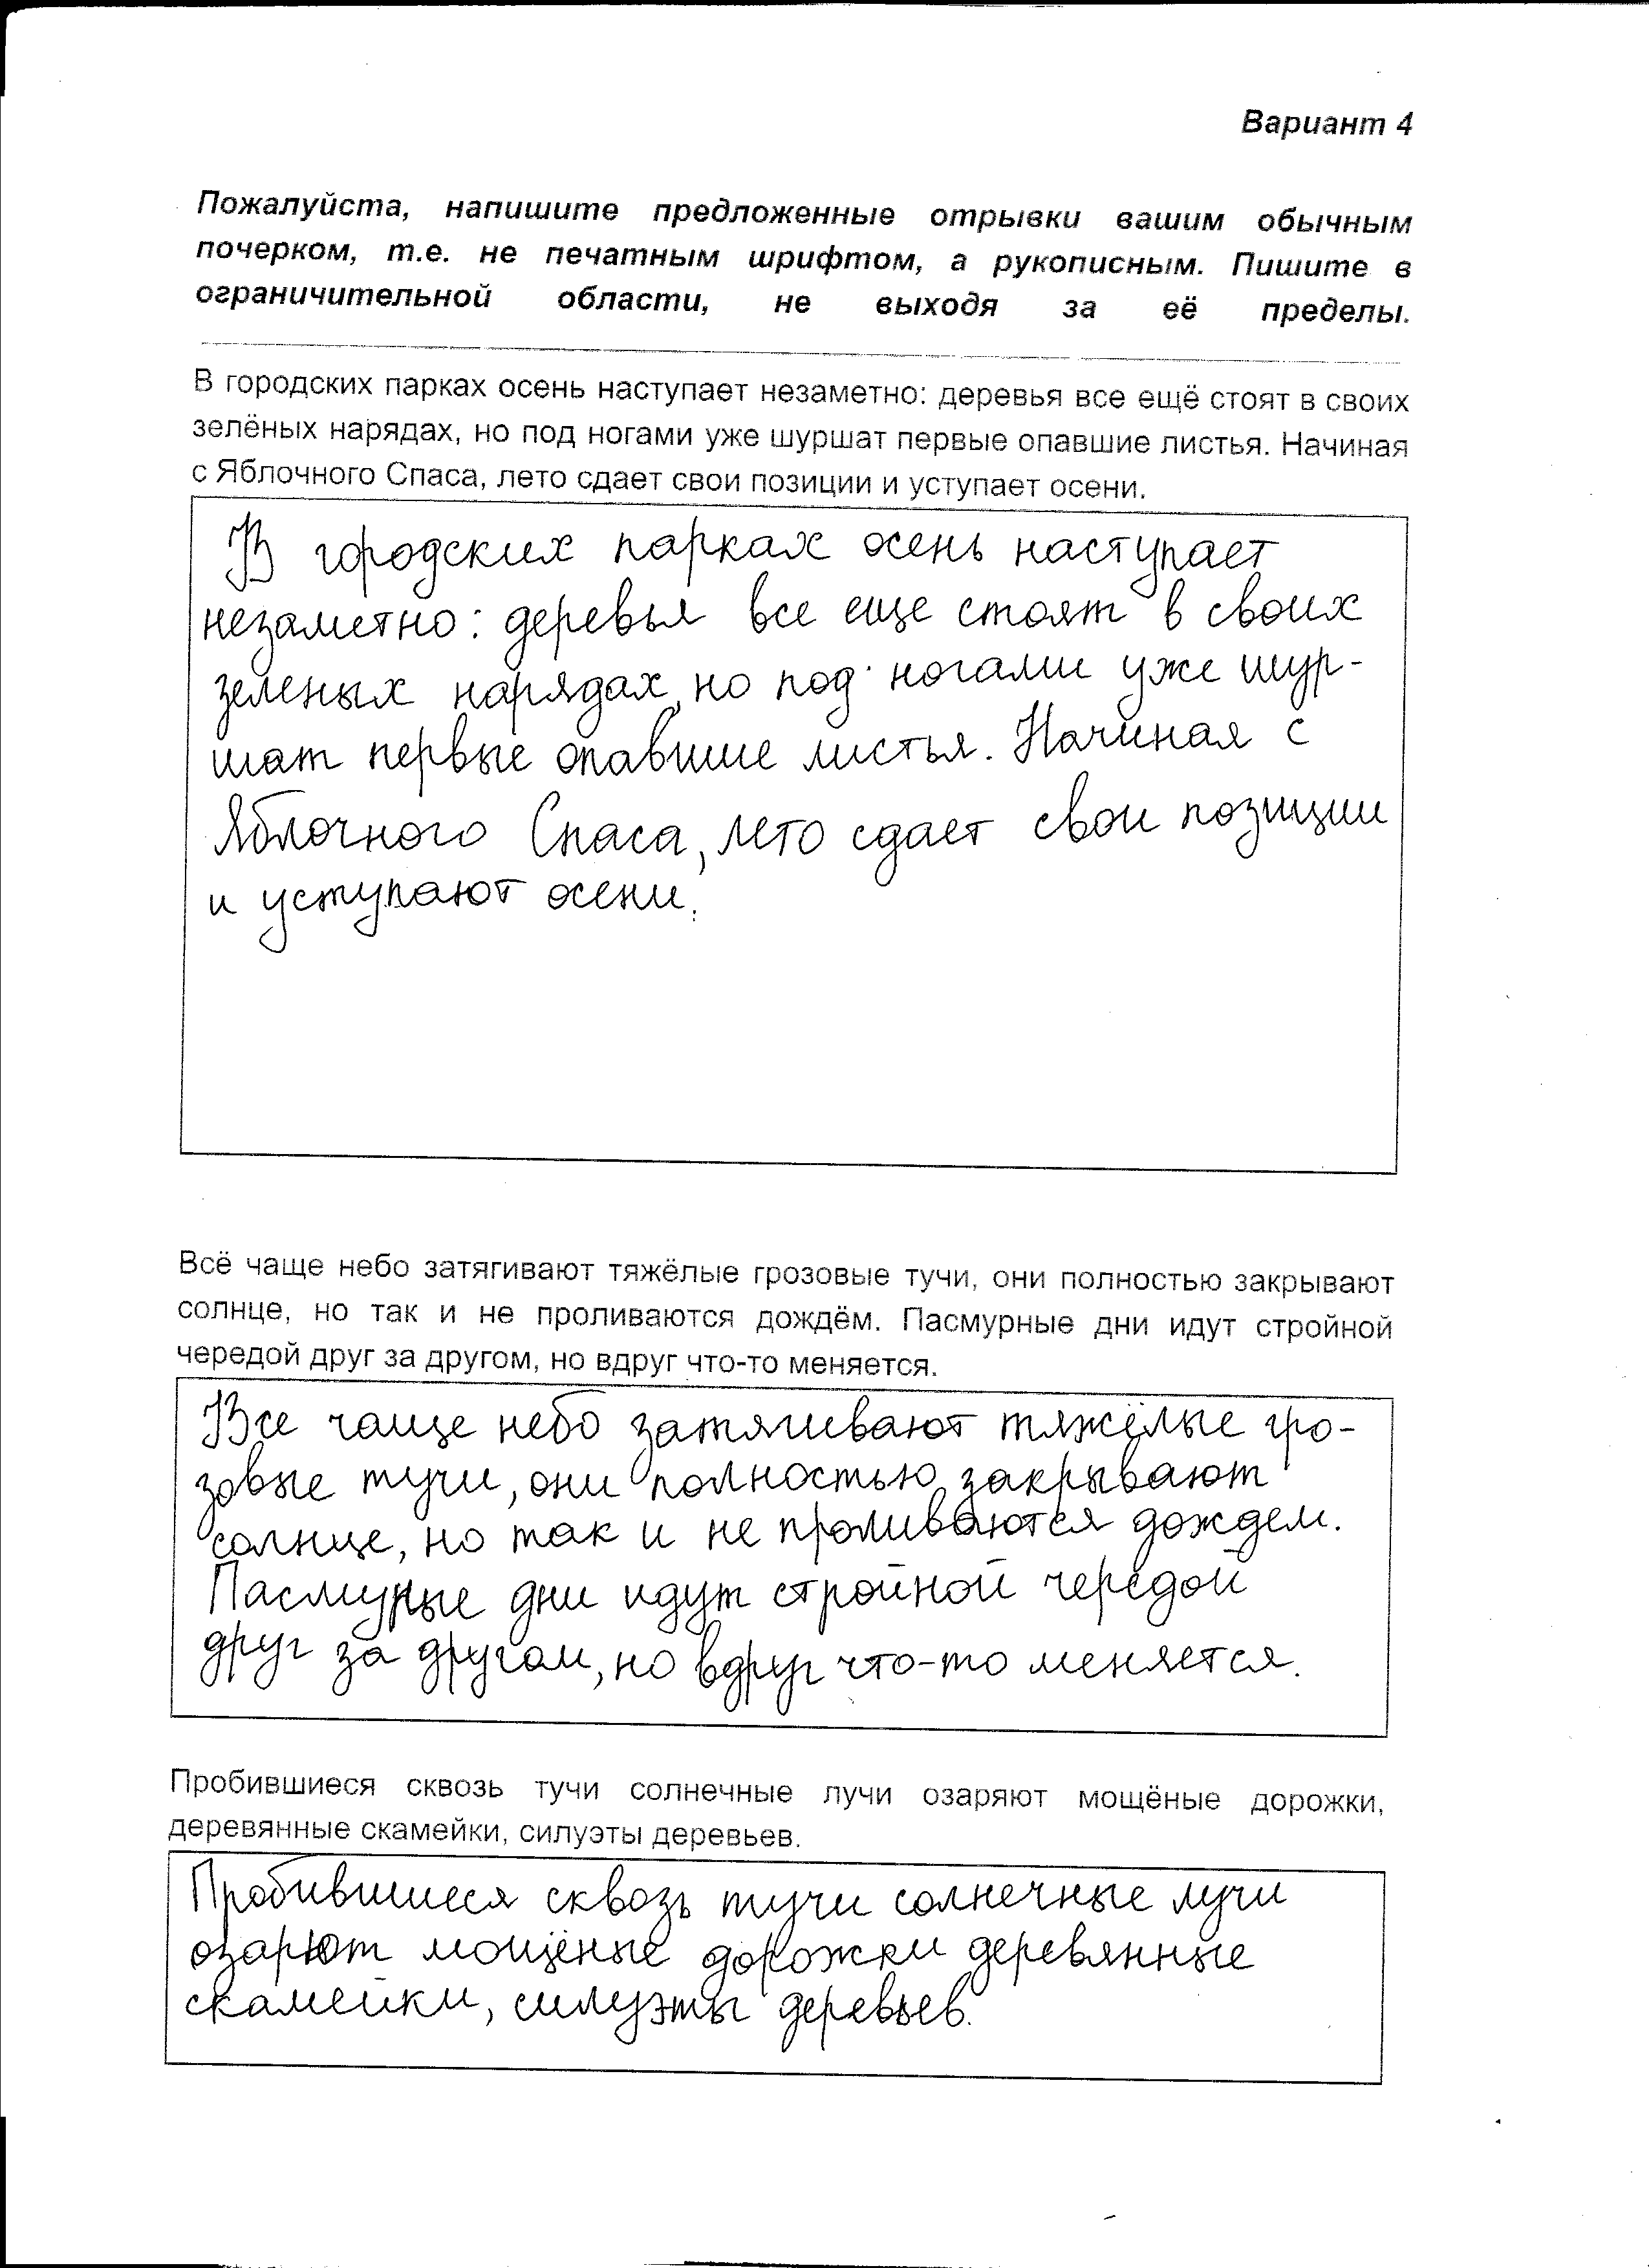 Вариант 4
Пожалуйста, напишите предложенные отрывки вашим обычным
почерком, т.е. не печатным шрифтом, а рукописным. Пишите в
ограничительной области, не выходя за её пределы.
В городских парках осень наступает незаметно: деревья все ещё стоят в своих
зелёных нарядах, но под ногами уже шуршат первые опавшие листья. Начиная
с Яблочного Спаса, лето сдает свои позиции и уступает осени.
В городских парках осень наступает
незаметно: деревья все еще стоят в своих
зеленых нарядах, но под ногами уже шур-
шат первые опавшие листья. Начиная с
Яблочного Спаса, лето сдает свои позиции
и уступают осени.
Всё чаще небо затягивают тяжёлые грозовые тучи, они полностью закрывают
солнце, но так и не проливаются дождём. Пасмурные дни идут стройной
чередой друг за другом, но вдруг что-то меняется.
Все чаще небо затягивают тяжёлые гро-
зовые тучи, они полностью закрывают
солнце, но так и не проливаются дождем.
Пасмурные дни идут стройной чередой
друг за другом, но вдруг что-то меняется.
Пробившиеся сквозь тучи солнечные лучи озаряют мощёные дорожки,
деревянные скамейки, силуэты деревьев.
Пробившиеся сквозь тучи солнечные лучи
озаряют мощёные дорожки деревянные
скамейки, силуэты деревьев.